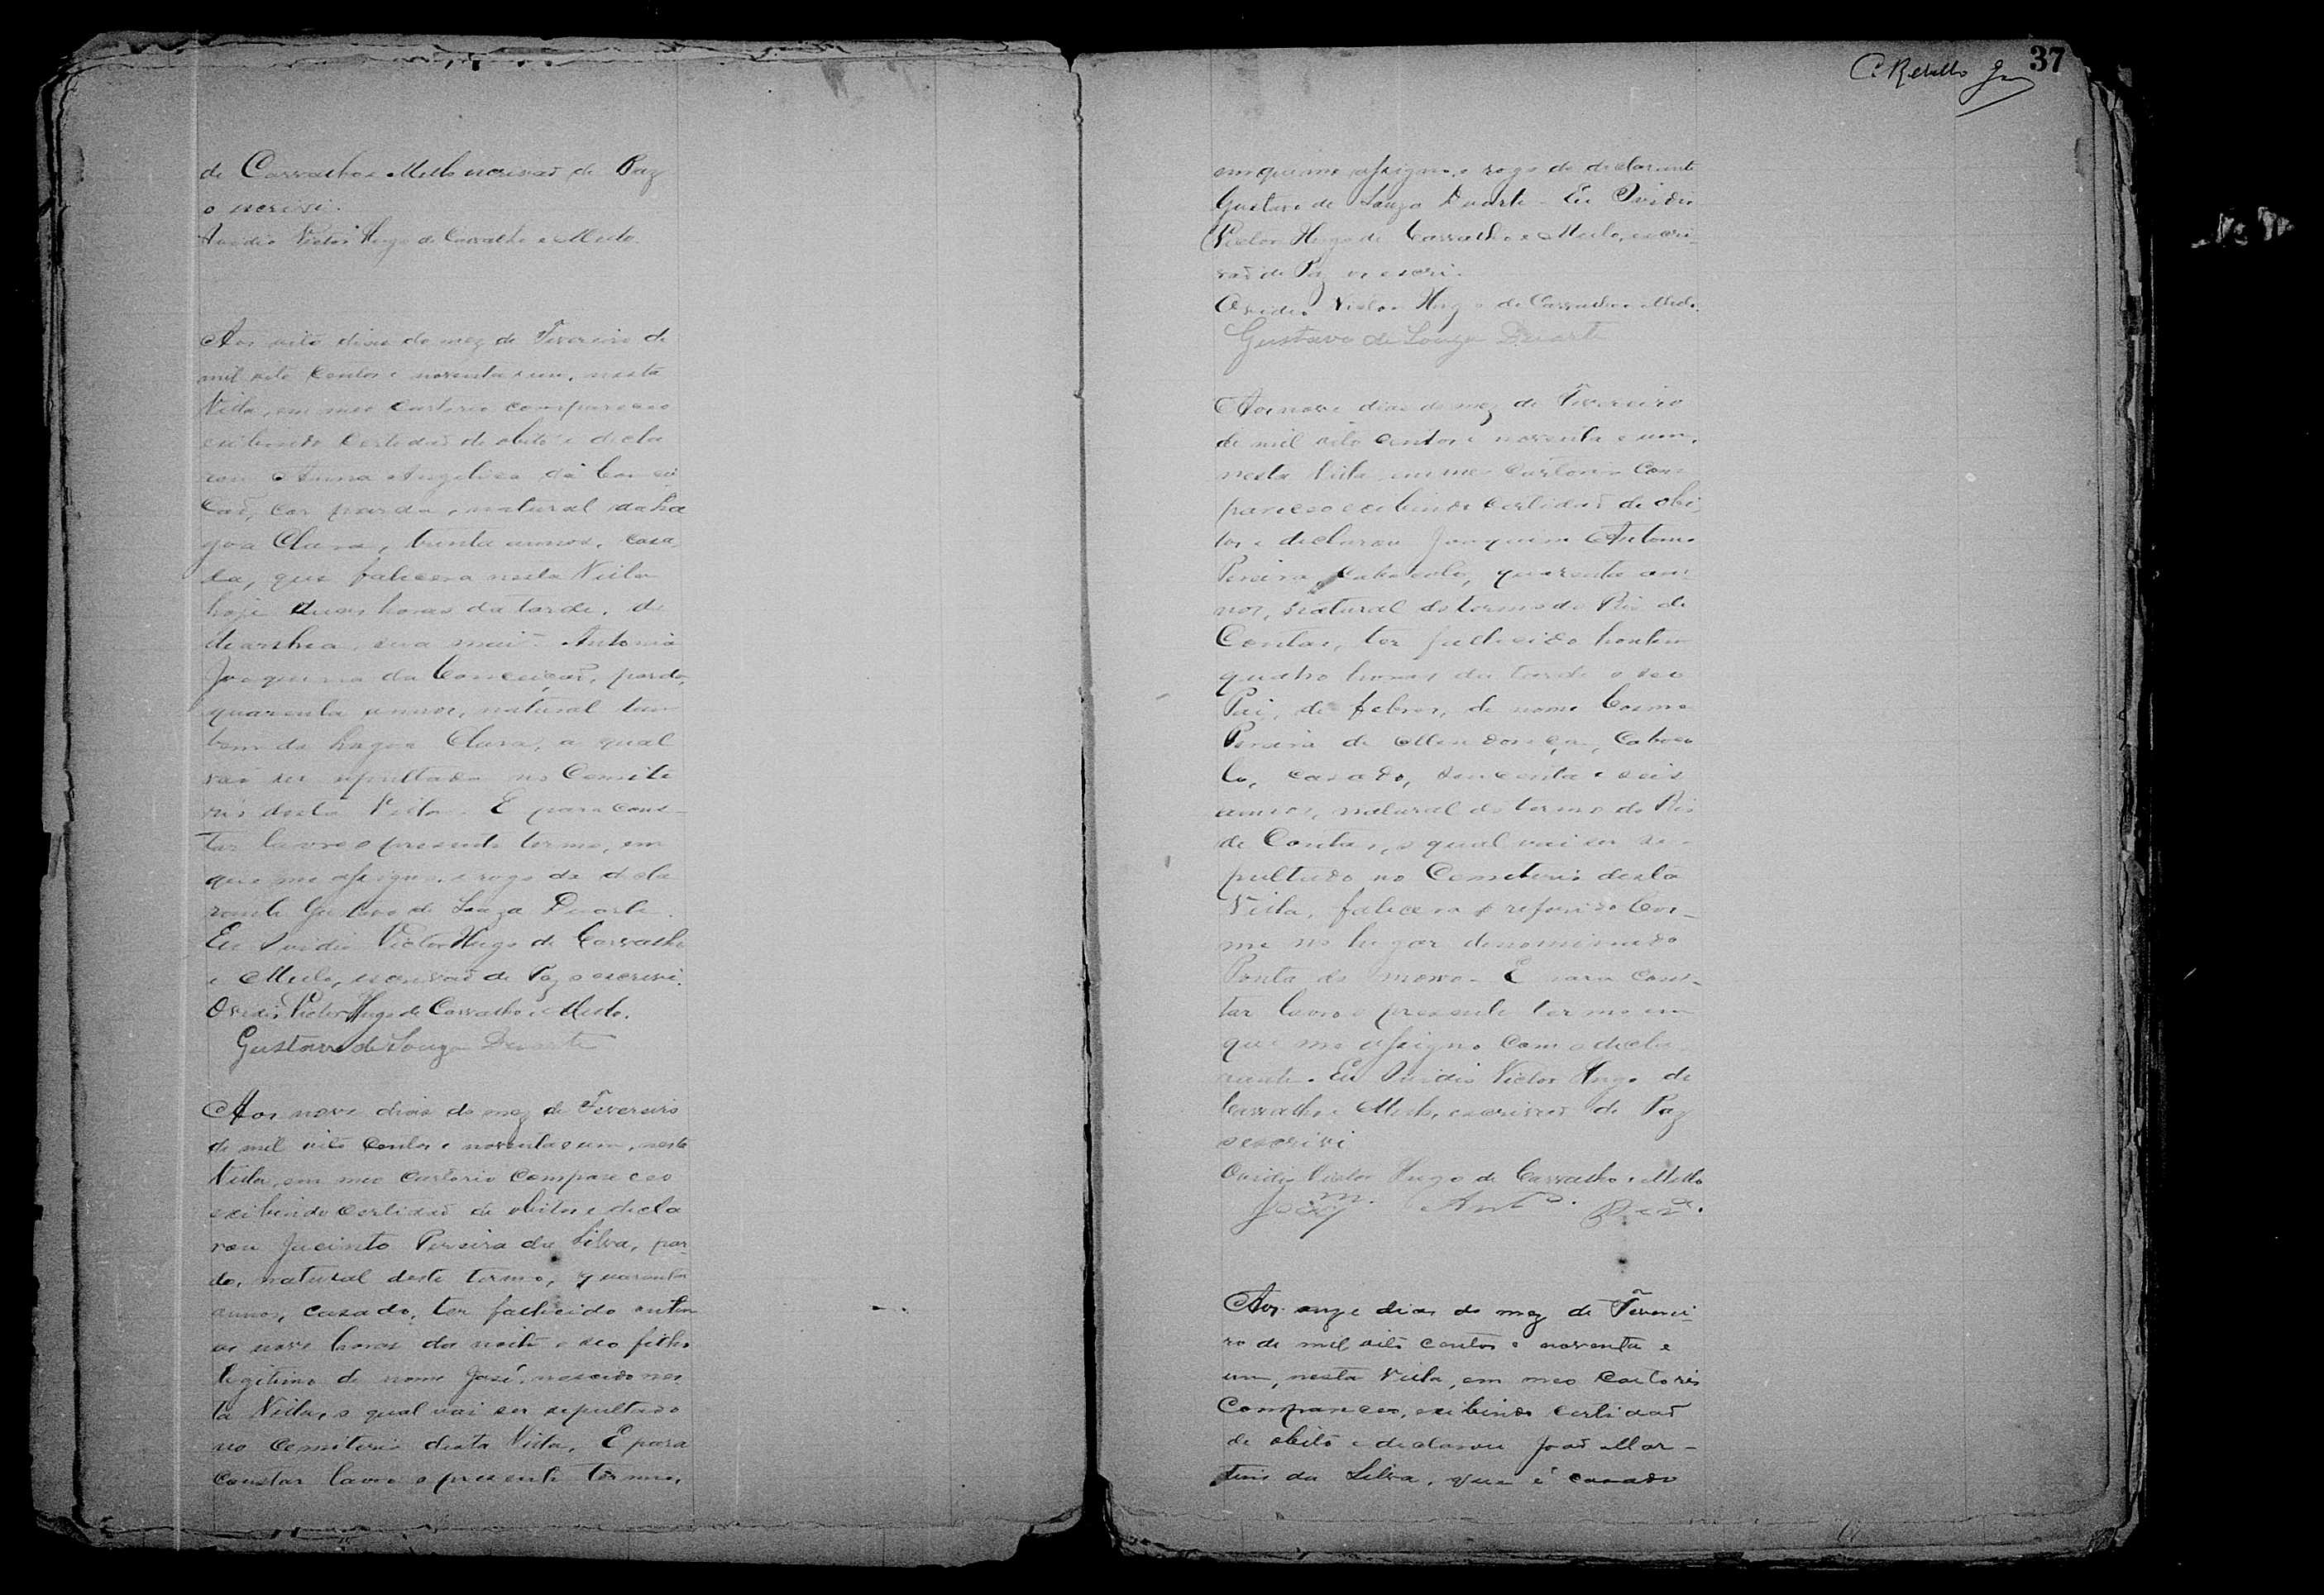 de Carvalho e Mello escrivaõ de Paz
o escrivi.
Ovidio Victor Hugo de Carvalho e Mello.
Aos oito dias do mez de Fevereiro de
mil oito centos e noventa e um, nesta
Villa, em meo Cartorio compareceo
exibindo certidaõ de obito e decla
rou Anna Angelica da Concei
çaõ, cor parda, natural da La
goa Clara, trinta annos, casa
da, que fallecera nesta Villa
hoje duas horas da tarde, de
diarrhea, sua mai Antonia
Joaquina da Conceiçaõ, parda,
quarenta annos, natural tam
bem da Lagoa Clara, a qual
vai ser sepultada no Cemite
rio desta Villa. E para cons-
tar lavro o presente termo, em
que me assigno, e rogo da decla
rante Gustavo de Souza Duarte.
Eu Ovidio Victor Hugo de Carvalho
e Mello, escrivaõ de Paz o escrivi.
Ovidio Victor Hugo de Carvalho e Mello.
Gustavo de Souza Duarte
Aos nove dias do mez de Fevereiro
de mil oito centos e noventa e um, nesta
Villa, em meo cartorio compareceo
exibindo certidaõ de obitos e decla
rou Jacinto Pereira da Silva, par
do, natural deste termo, quarenta
annos, casado, ter fallecido ontem
as nove horas da noite o seo filho
legitimo de nome José, nascido nes
ta Villa, o qual vai ser sepultado
no Cemiterio desta Villa, E para
constar lavro o presente termo,
37
C. Rebello Jr
em que me assigno, e rogo do declarante
Gustavo de Souza Duarte - Eu Ovidio
Victor Hugo de Carvalho e Mello, escri-
vaõ de Paz o escri.
Ovidio Victor Hugo de Carvalho e Mello.
Gustavo de Souza Duarte
Aos nove dias do mez de Fevereiro
de mil oito centos e noventa e um,
nesta Villa em meo Cartorio com
pareceo exibindo certidaõ de obi
tos e declarou Joaquim Antonio
Pereira, Caboculo, quarenta an
nos, natural do termo do Rio de
Contas, ter fallecido hontem
quatro horas da tarde o seo
Pai, de febres, de nome Cosme
Pereira de Mendonça, Cabocu
lo, casado, e seis
annos, natural do termo do Rio
de Contas, o qual vai ser se-
pultado no Cemiterio desta
Villa, fallecera o referido Cos-
me no lugar denominado
Ponta do morro - E para cons-
tar lavro o presente termo em
que me assigno com o decla
rante. Eu Ovidio Victor Hugo de
Carvalho e Mello, escrivaõ de Paz
o escrivi
Ovidio Victor Hugo de Carvalho e Mello
Joaqm. Anto. Pera.
Aos onze dias do mez de Feverei-
ro de mil oito centos e noventa e
um, nesta Villa, em meo Cartorio
Compareceo, exibindo certidaõ
de obito e declarou Joaõ Mar-
tins da Silva, que é casado